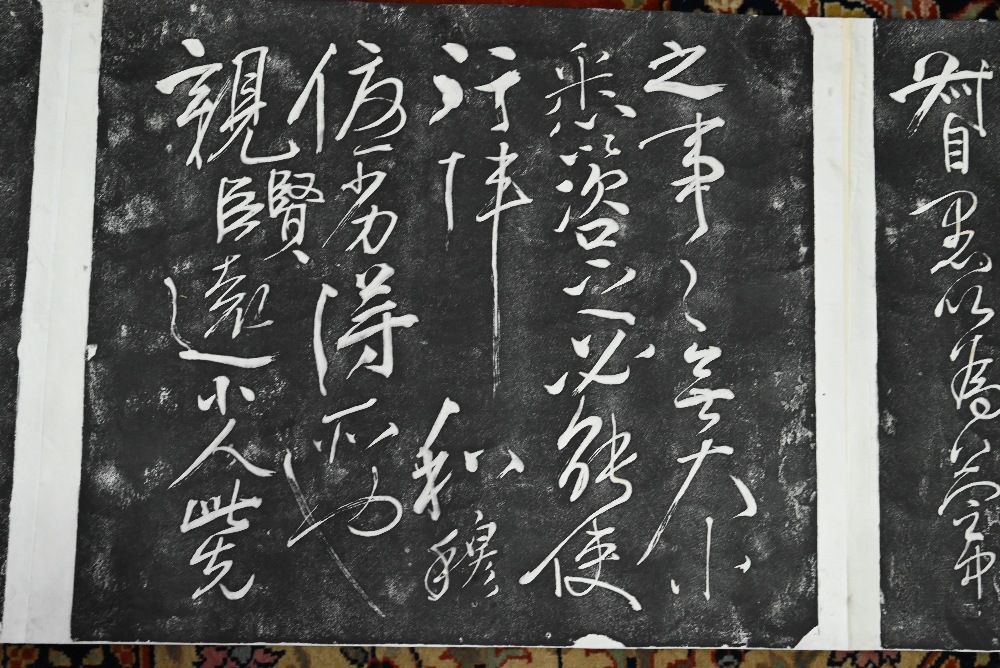 督愚以為營中
之事〻無大小
悉以咨之必能使
行陣和穆
優劣得所也
親賢臣遠小人此先